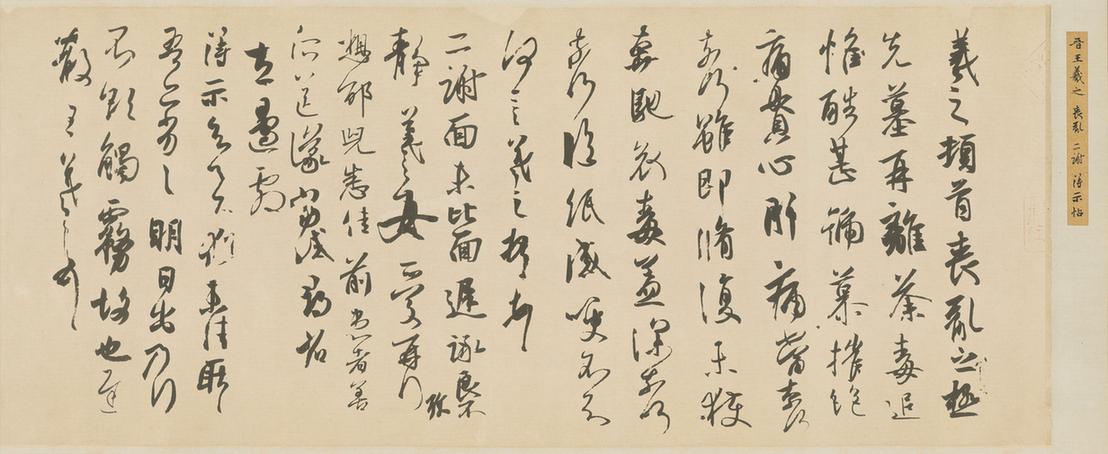 晉王羲之 喪亂 二謝 得示帖
羲之頓首喪亂之極
先墓再離荼毒追
惟酷甚號慕摧絕
痛貫心肝痛當奈何
奈何雖即脩復未獲
奔馳哀毒益深奈何
奈何臨紙感哽不知
何言羲之頓首頓首
二謝面未比面遲詠良不
靜羲之女愛再拜
珍
想邵兒悉佳前患者善
所送議當試尋省
左邊劇
得示知足下猶未佳耿耿
吾亦劣劣明日出乃行
不欲觸霧故也遲
散王羲之頓首